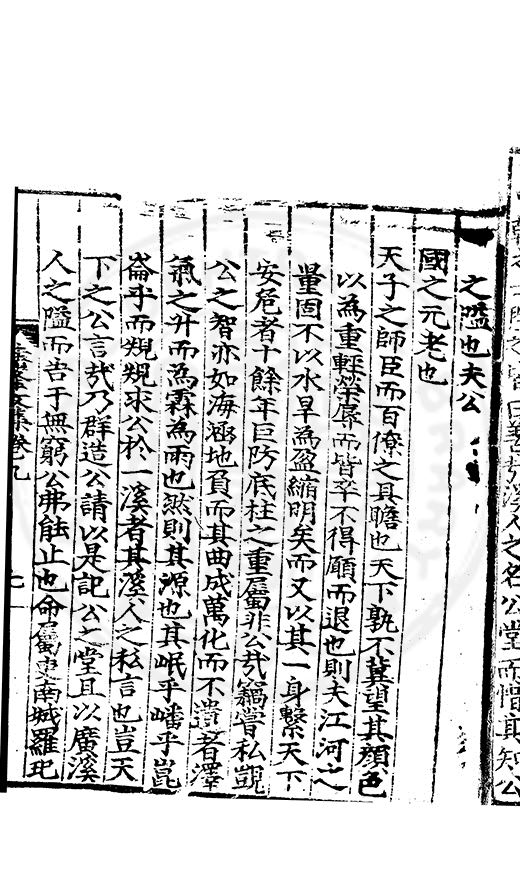 之隘也夫公
國之元老也
天子之師臣而百僚之具瞻也天下孰不冀望其顔色
以為重輕榮辱而皆卒不得願而退也則夫江河之
量固不以水旱為盈縮明矣而又以其一身繫天下
安危者十餘年巨防底柱之重屬非公㢤竊嘗私覬
公之智亦如海涵地負而其曲成萬化而不遺者澤
氣之升而為霖為雨也然則其源也其岷乎嶓乎崑
崙乎而規規求公於一溪者其溪人之私言也豈天
下之公言㢤乃群造公請以是記公之堂且以廣溪
人之隘而告于無窮公弗能止也命屬吏南城羅玘
文集卷九